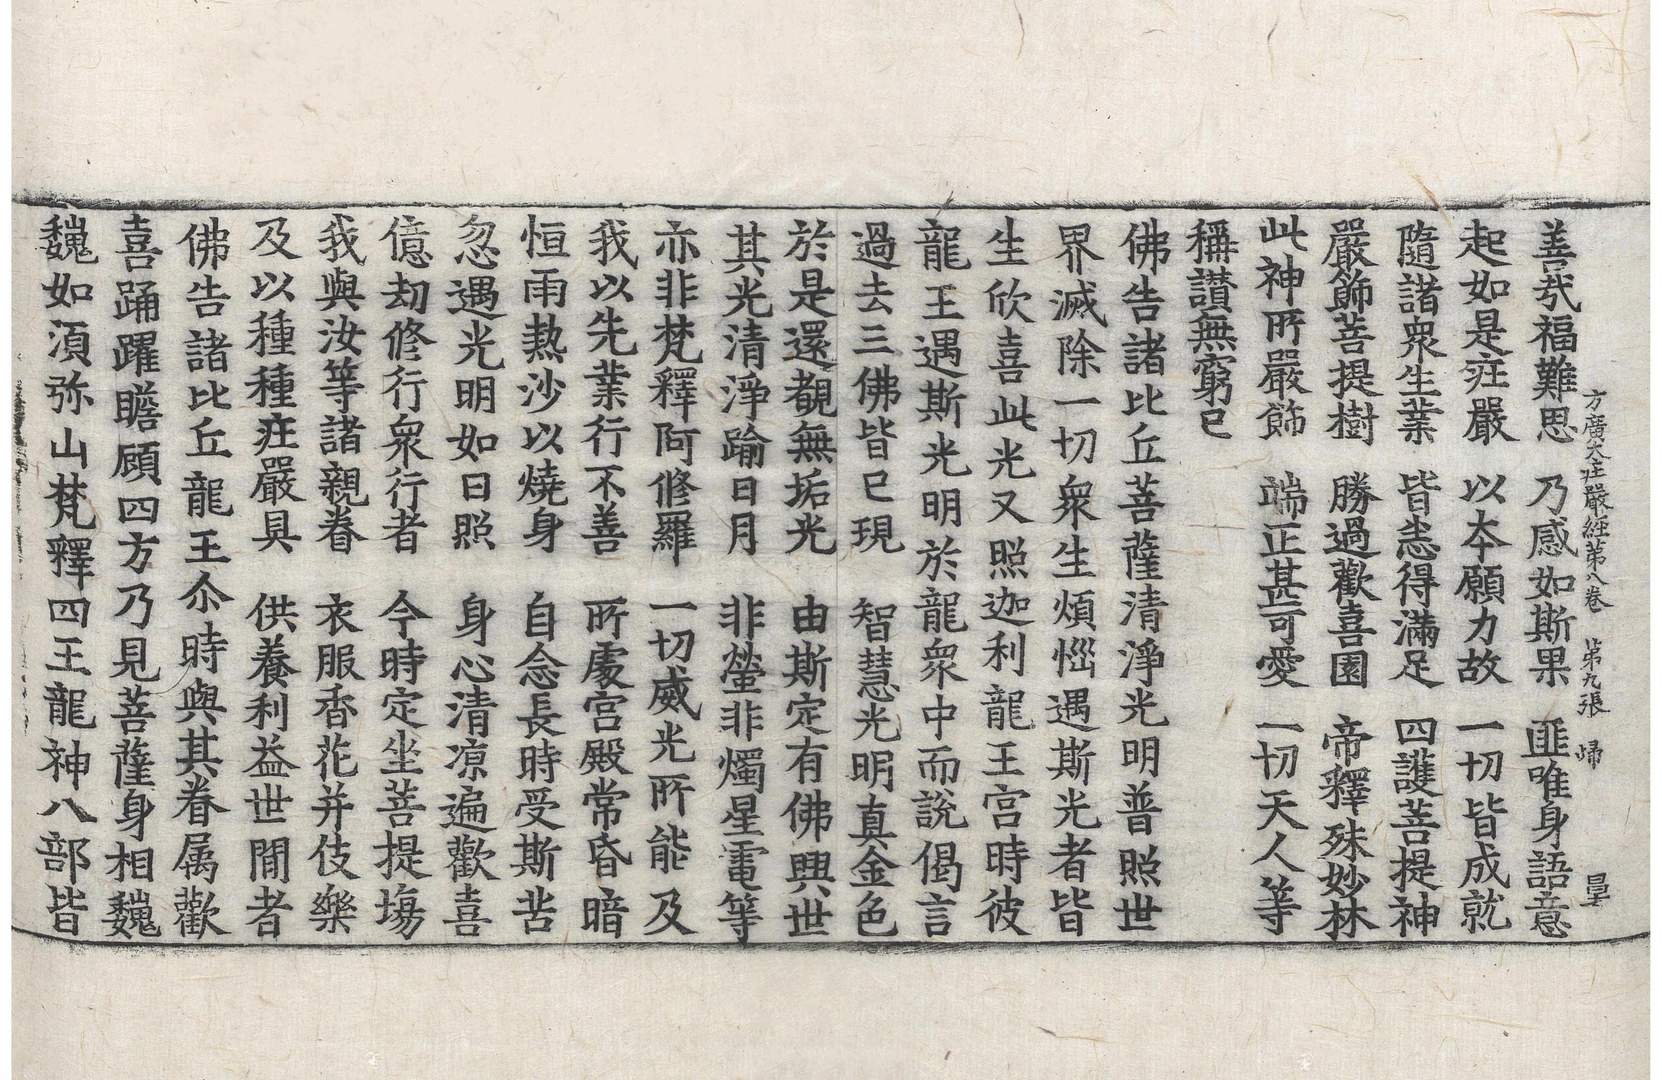 方廣大庄嚴經第八卷　第九張　歸
善哉福難思　乃感如斯果　匪唯身語意
起如是庄嚴　以夲願力故　一切皆成就
隨諸衆生業　皆悉得滿足　四護菩提神
嚴飾菩提樹　勝過歡喜園　帝釋殊妙林
此神所嚴飾　端正甚可愛　一切天人等
稱讃無窮已
佛告諸比丘菩薩清淨光明普照世
界滅除一切衆生煩惱遇斯光者皆
生欣喜此光又照迦利龍王宮時彼
龍王遇斯光明於龍衆中而說偈言
過去三佛皆已現　智慧光明真金色
於是還覩無垢光　由斯定有佛興世
其光清淨踰日月　非螢非燭星電等
亦非梵釋阿修羅　一切威光所能及
我以先業行不善　所處宮殿常昏暗
恒雨熱沙以燒身　自念長時受斯苦
忽遇光明如日照　身心清凉遍歡喜
億劫修行衆行者　今時定坐菩提場
我與汝等諸親眷　衣服香花并伎樂
及以種種庄嚴具　供養利益世間者
佛告諸比丘龍王尒時與其眷属歡
喜踊躍瞻顧四方乃見菩薩身相巍
巍如湏弥山梵釋四王龍神八部皆